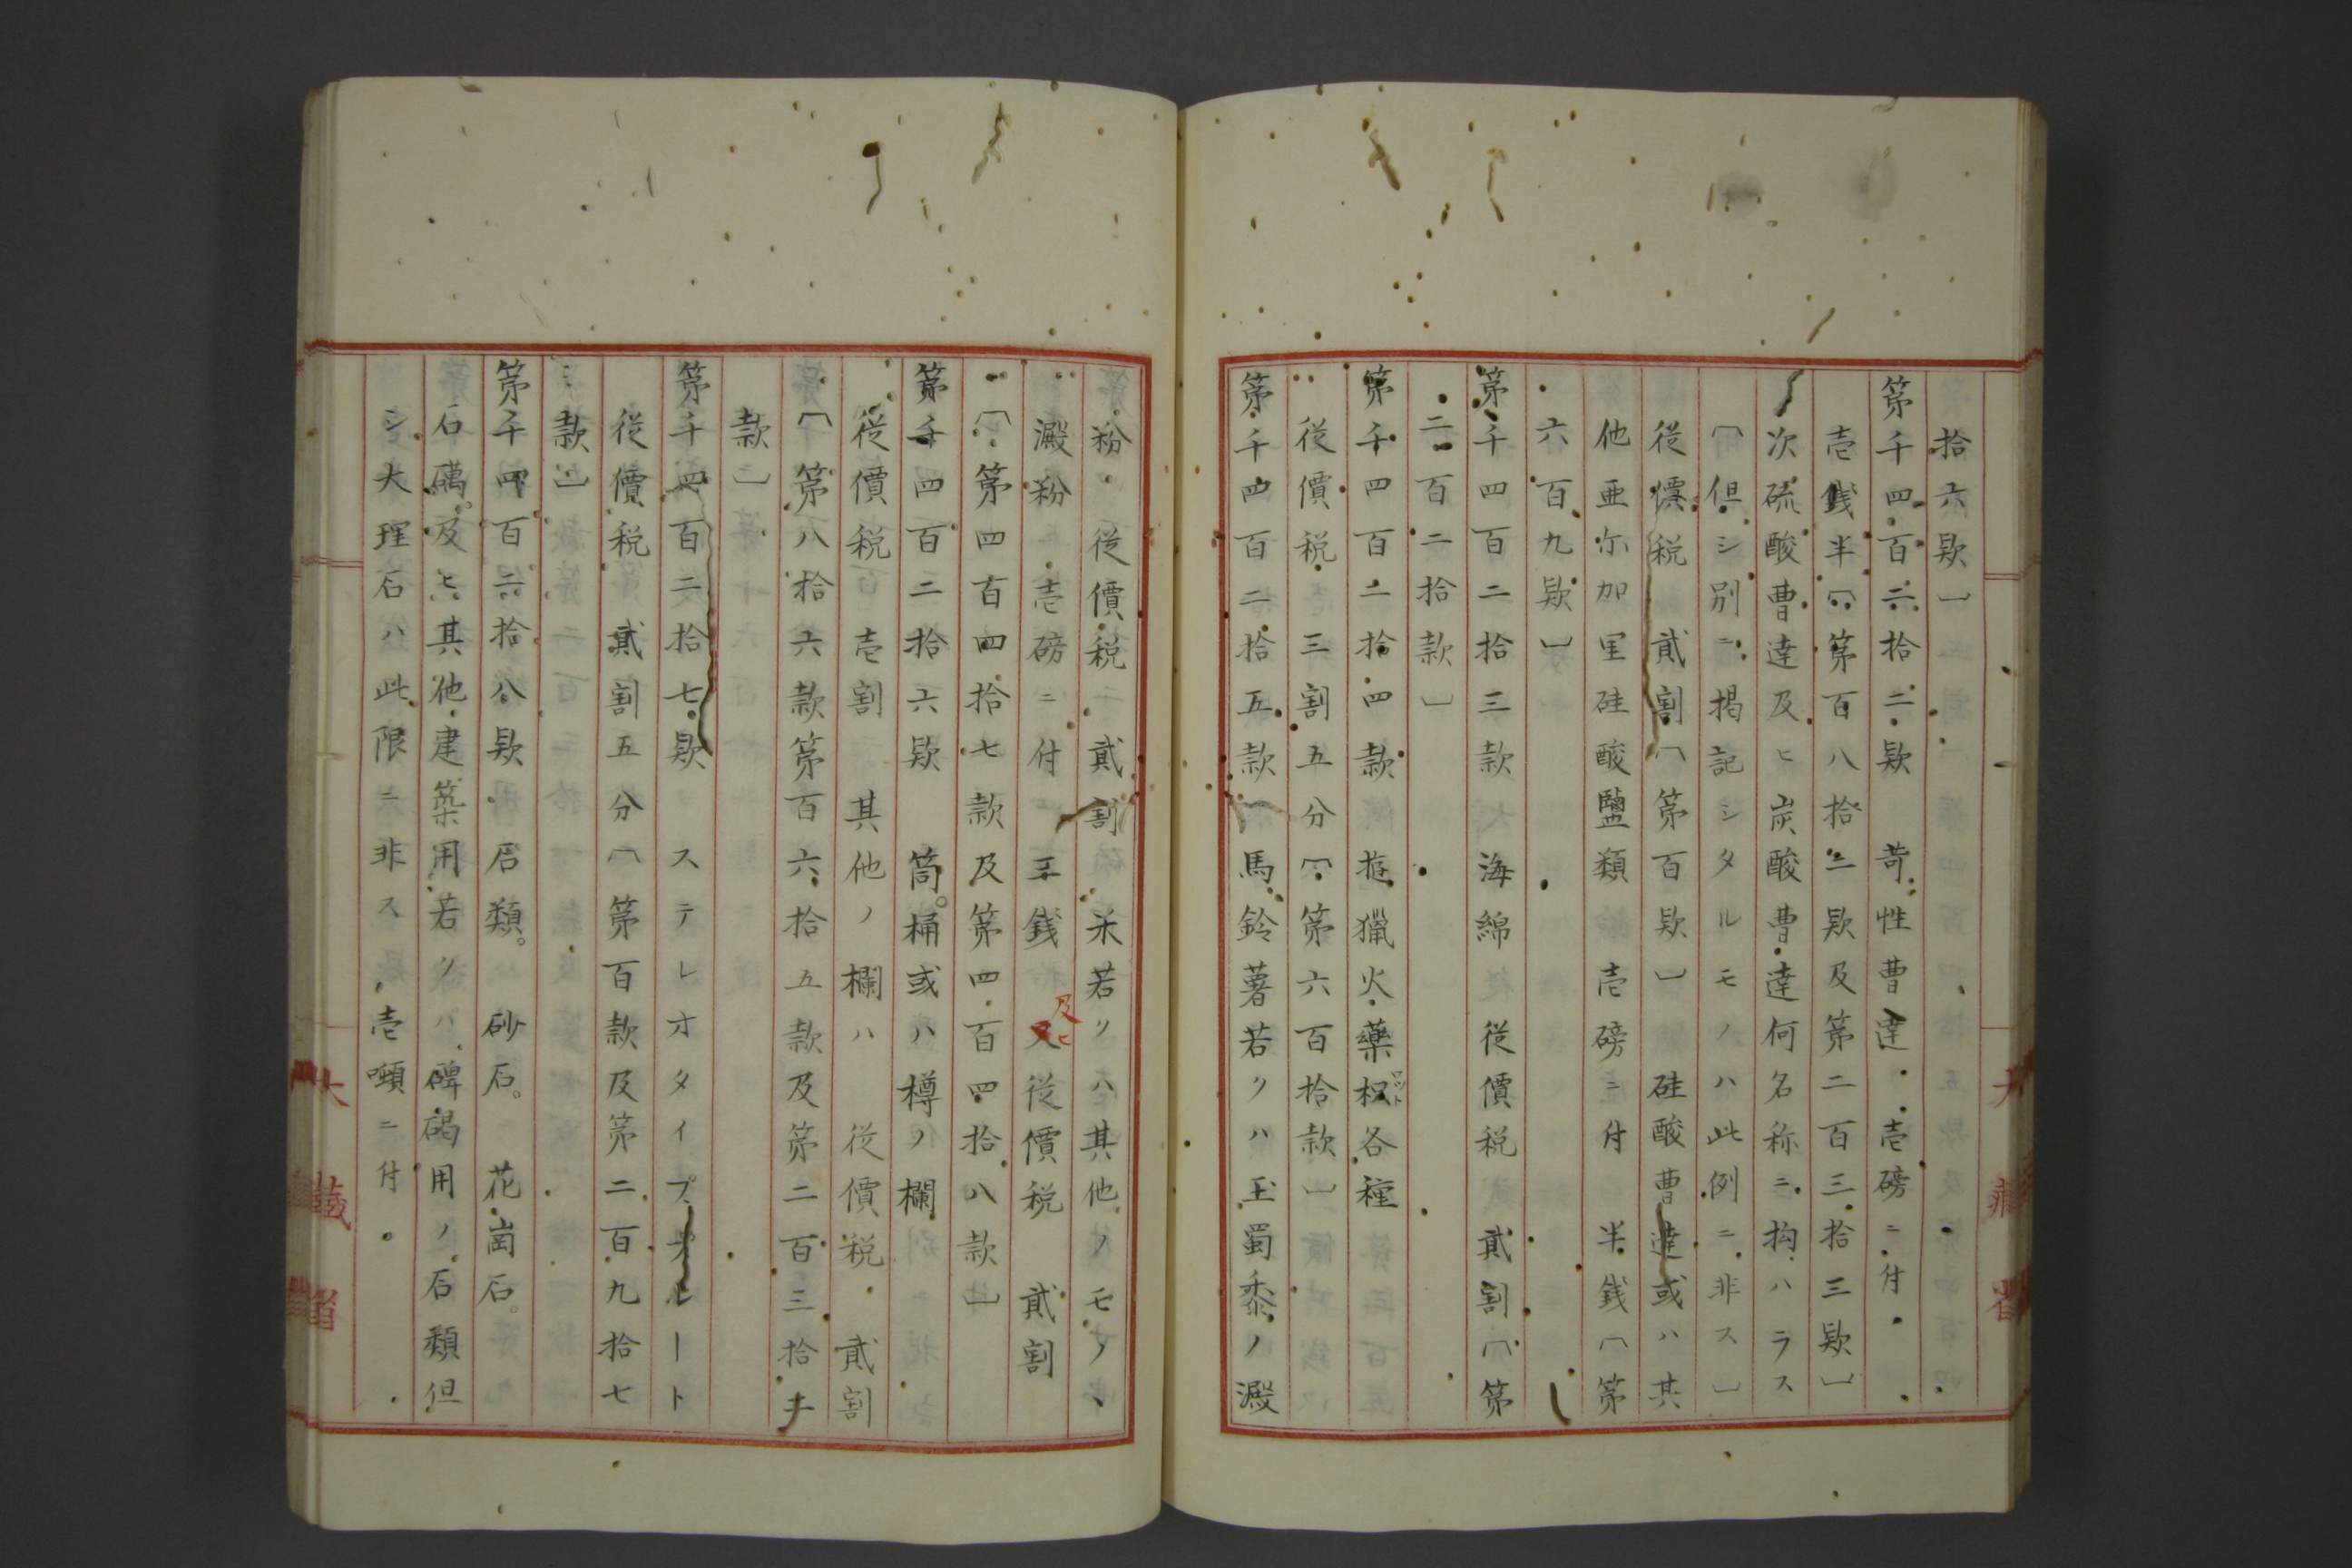 拾六欵〕
第千四百二拾二欵　苛性曹達　壱磅ニ付
壱銭半〔第百八拾二欵及第二百三拾三欵〕
次硫酸曹達及ヒ炭酸曹達何名称ニ拘ハラス
〔但シ別ニ掲記シタルモノハ此例ニ非ス〕
従價税　貳割〔第百欵〕　硅酸曹達或ハ其
他亜尓加里硅酸鹽類　壱磅ニ付　半銭〔第
六百九欵〕
第千四百二拾三款　海綿　従價税　貳割〔第
二百二拾款〕
第千四百二拾四款　遊猟火藥　各種
従價税　三割五分〔第六百拾款〕
第千四百二拾五款　馬鈴薯若クハ玉蜀黍ノ澱
粉　従價税　貳割　米若クハ其他ノモノヽ
澱粉　壱磅ニ付　三銭　及ヒ従價税　貳割
〔第四百四拾七款及第四百四拾八款〕
第千四百二拾六欵　筒。桶或ハ樽ノ欄
従價税　壱割　其他ノ欄ハ　従價税　貳割
〔第八拾六款第百六拾五款及第二百三拾キ
款〕
第千四百二拾七欵　ステレオタイププレート
従價税　貳割五分〔第百款及第二百九拾七
款〕
第千四百二拾八欵　石類。砂石。花崗石。
石礪。及ヒ其他建築用若クハ碑碣用ノ石類但
シ大理石ハ此限ニ非ス　壱噸ニ付
大藏省
大藏省